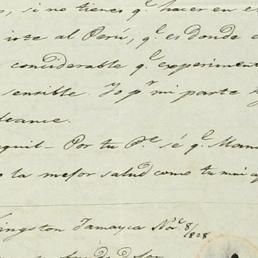 , si no tienes q.e hacer en e
irte al Perú, q.e es donde e
considerable q.e experiment
sensible. Yo p.r mi parte
deame.
aquil - Por tu P.e sé q.e Mam
o la mejor salud como tu mi a
Kingston Jamayca Nov.e 8/828